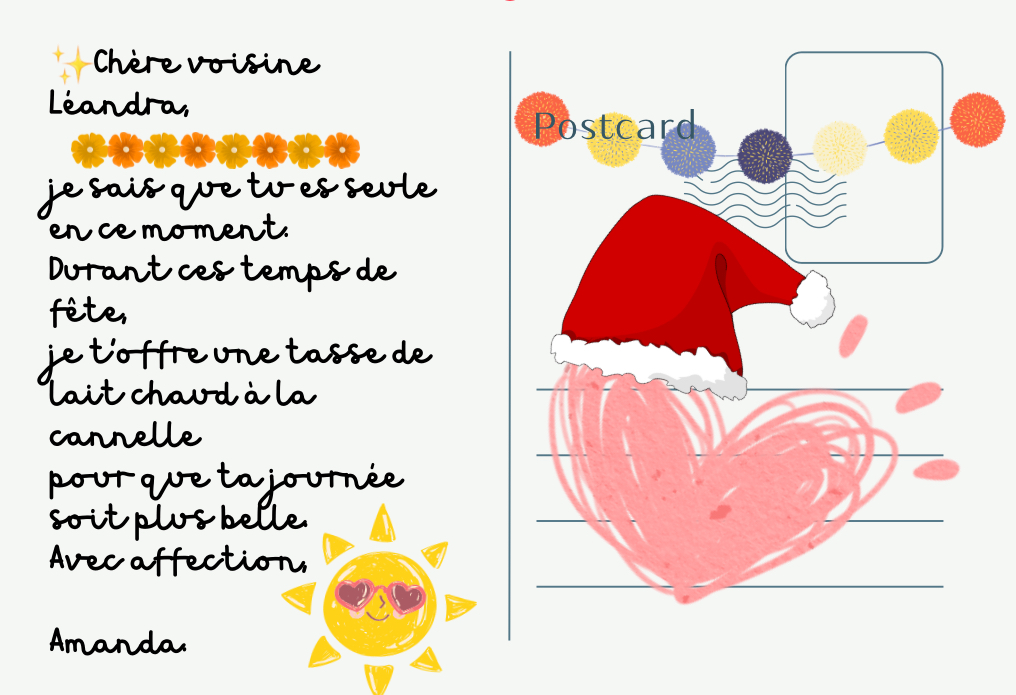 Chère voisine
Léandra,
je sais que tu es seule
en ce moment.
Durant ces temps de
fête,
je t'offre une tasse de
lait chaud à la
cannelle
pour que ta journée
soit plus belle.
Avec affection,
Amanda.
Postcard